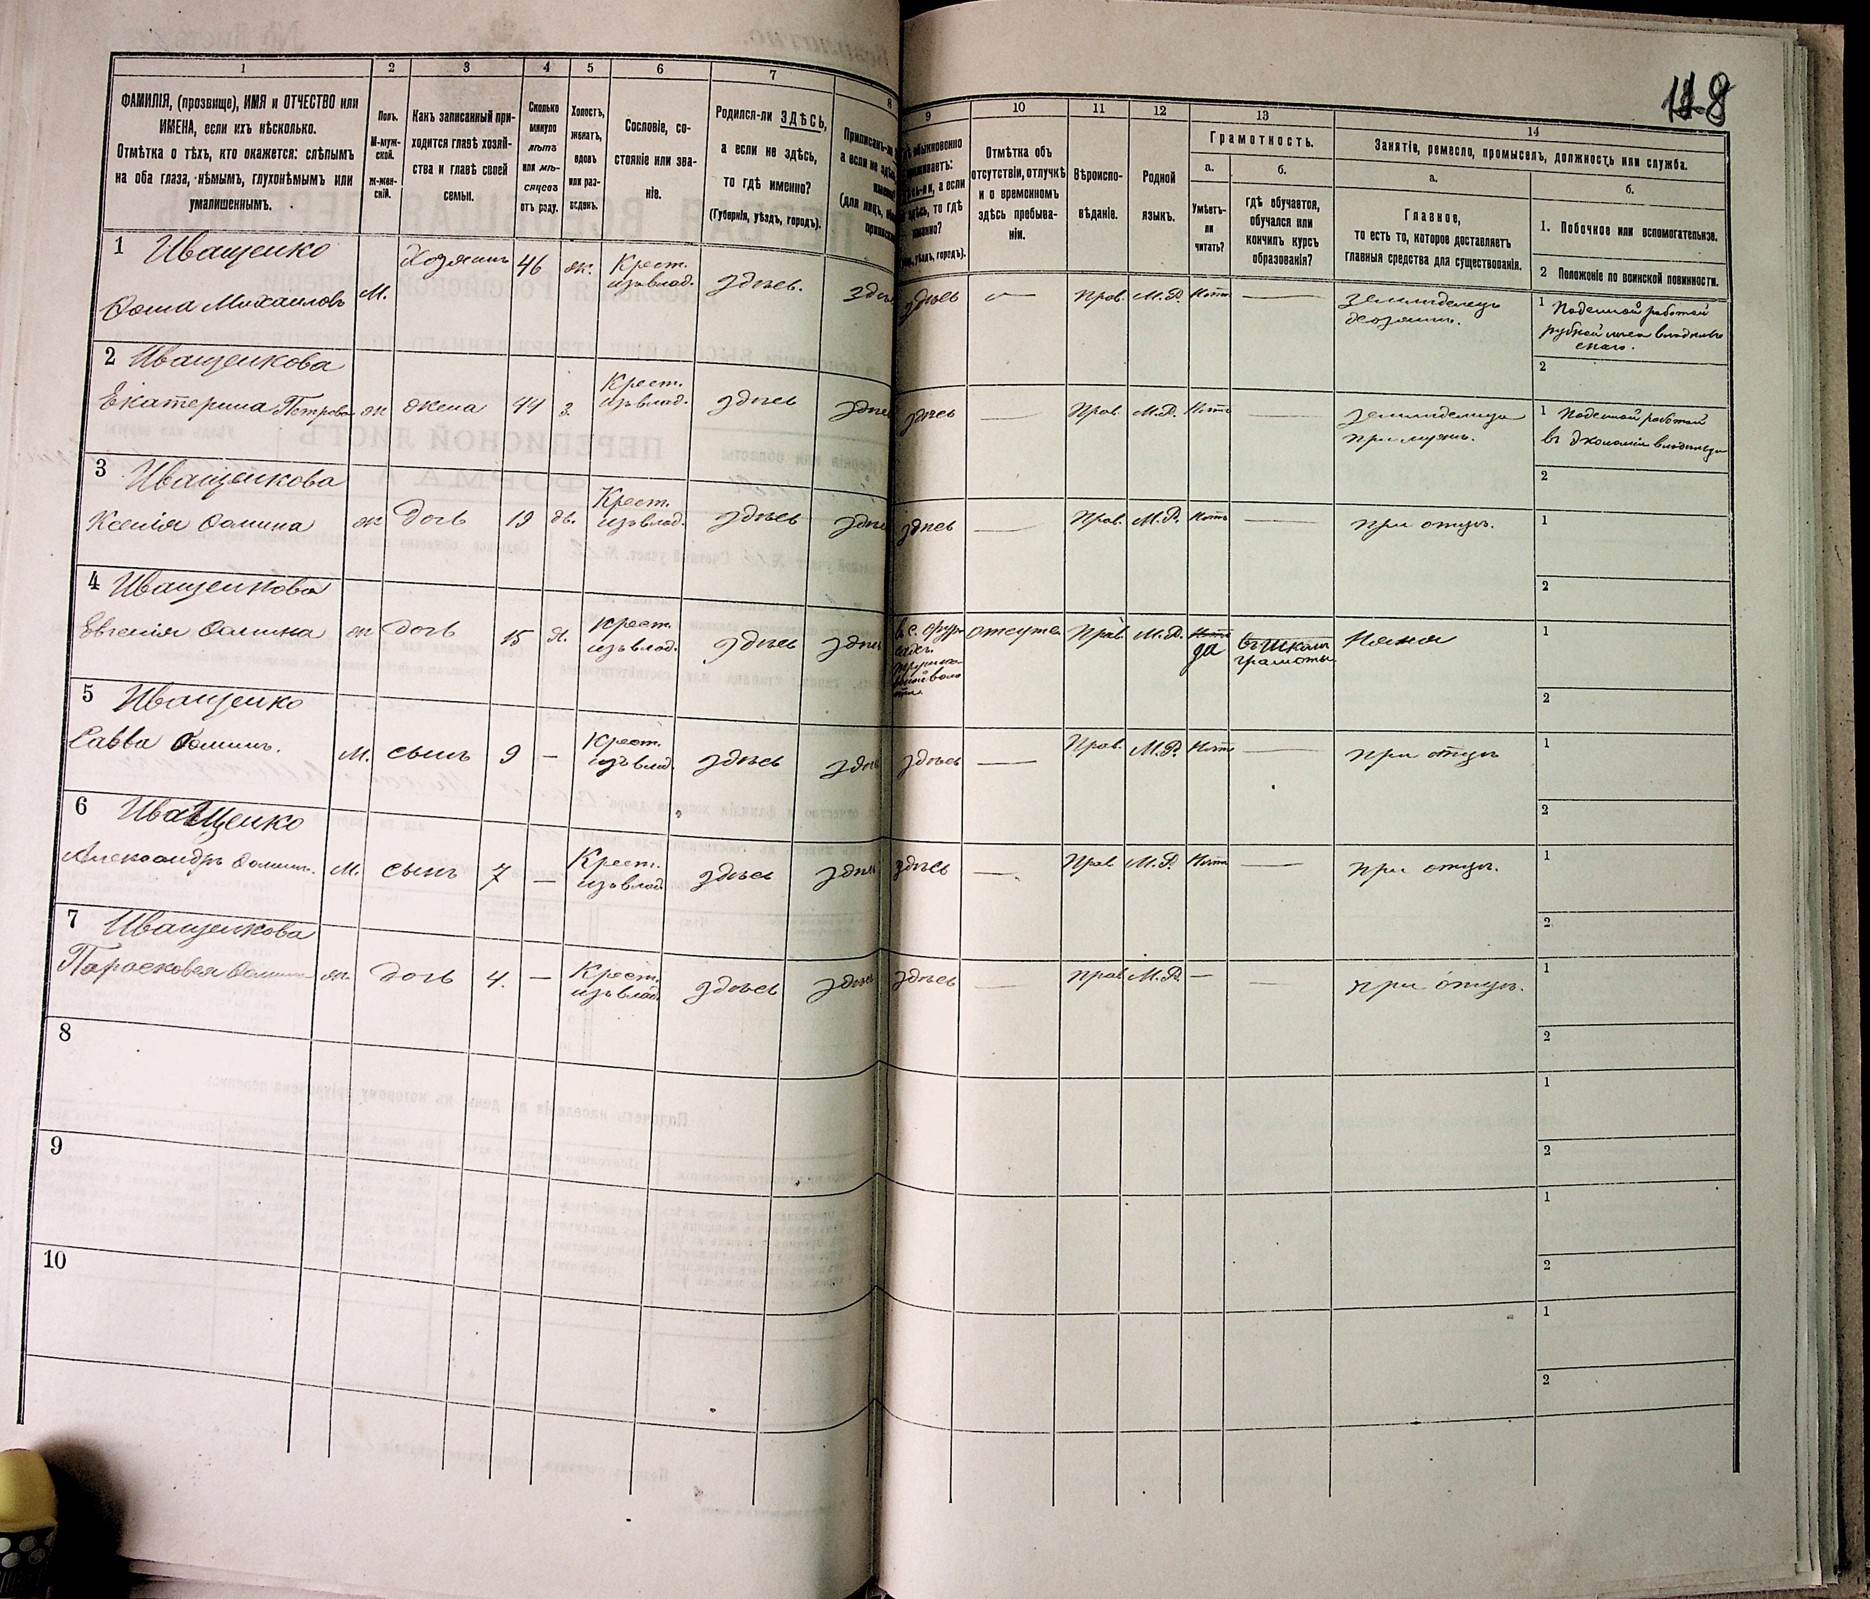 118
1
2
3
4
5
6
7
8
9
10
11
12
13
14
ФАМИЛІЯ, (прозвище), ИМЯ и ОТЧЕСТВО или
ИМЕНА, если ихъ нѣсколько.
Отмѣтка о тѣхъ, кто окажется: слѣпымъ
на оба глаза, нѣмымъ, глухонѣмымъ или
умалишеннымъ.
Полъ.
М-муж-
ской.
ж-жен-
скій.
Какъ записанный при-
ходится главѣ хозяй-
ства и главѣ своей
семьи.
Сколько
минуло
лѣтъ
или мѣ-
сяцевъ
отъ роду.
Холостъ,
женатъ,
вдовъ
или раз-
веденъ.
Сословіе, со-
стояніе или зва-
ніе.
Родился-ли ЗДѢСЬ,
а если не здѣсь,
то гдѣ именно?
(Губернія, уѣздъ, городъ).
Отмѣтка объ
отсутствіи, отлучкѣ
и о временномъ
здѣсь пребыва-
ніи.
Вѣроиспо-
вѣданіе.
Родной
языкъ.
Грамотность.
а.
Умѣетъ-
ли
читать?
б.
гдѣ обучается,
обучался или
кончилъ курсъ
образованія?
Занятіе, ремесло, промыселъ, должность или служба.
а.
Главное,
то есть то, которое доставляетъ
главныя средства для существованія.
б.
1. Побочное или вспомогательное.
2 Положеніе по воинской повинности.
1 Иващенко
Фома Михаиловъ
М.
Хозяинъ
46
ж.
Крест.
изъ влад.
здѣсь.
здѣсь
Прав.
М.Р.
Нѣтъ
—
земледелецъ
хозяинъ.
1 Поденной работой
2
2 Иващенкова
Екатерина Петрова
ж
жена
44
з.
Крест.
изъ влад.
здѣсь
здѣсь
—
Прав.
М.Р.
Нѣтъ
—
земледелица
при мужѣ.
1 Поденной работой
въ экономіи владельца
2
3 Иващенкова
Ксенія Фомина
ж
дочь
19
дв.
Крест.
изъ влад.
здѣсь
здѣсь
—
Прав.
М.Р.
Нѣтъ
—
при отцѣ.
1
2
4 Иващенкова
Евгенія Фомина
ж
дочь
15
д.
Крест.
изъ влад.
здѣсь
отсутс.
Прав.
М.Р.
Нѣтъ
да
въ школѣ
грамоты
Няня
1
2
5 Иващенко
Савва Фоминъ.
М.
сынъ
9
—
Крест.
изъ влад.
здѣсь
здѣсь
—
Прав.
М.Р.
Нѣтъ
—
при отцѣ
1
2
6 Иващенко
Александръ Фоминъ.
М.
сынъ
7
—
Крест.
изъ влад.
здѣсь
здѣсь
—
Прав
М.Р.
Нѣтъ
—
при отцѣ.
1
2
7 Иващенкова
Парасковея Фомина
ж.
дочь
4.
—
Крест.
изъ влад.
здѣсь
здѣсь
—
прав
М.Р.
—
—
при отцѣ.
1
2
8
1
2
9
1
2
10
1
2